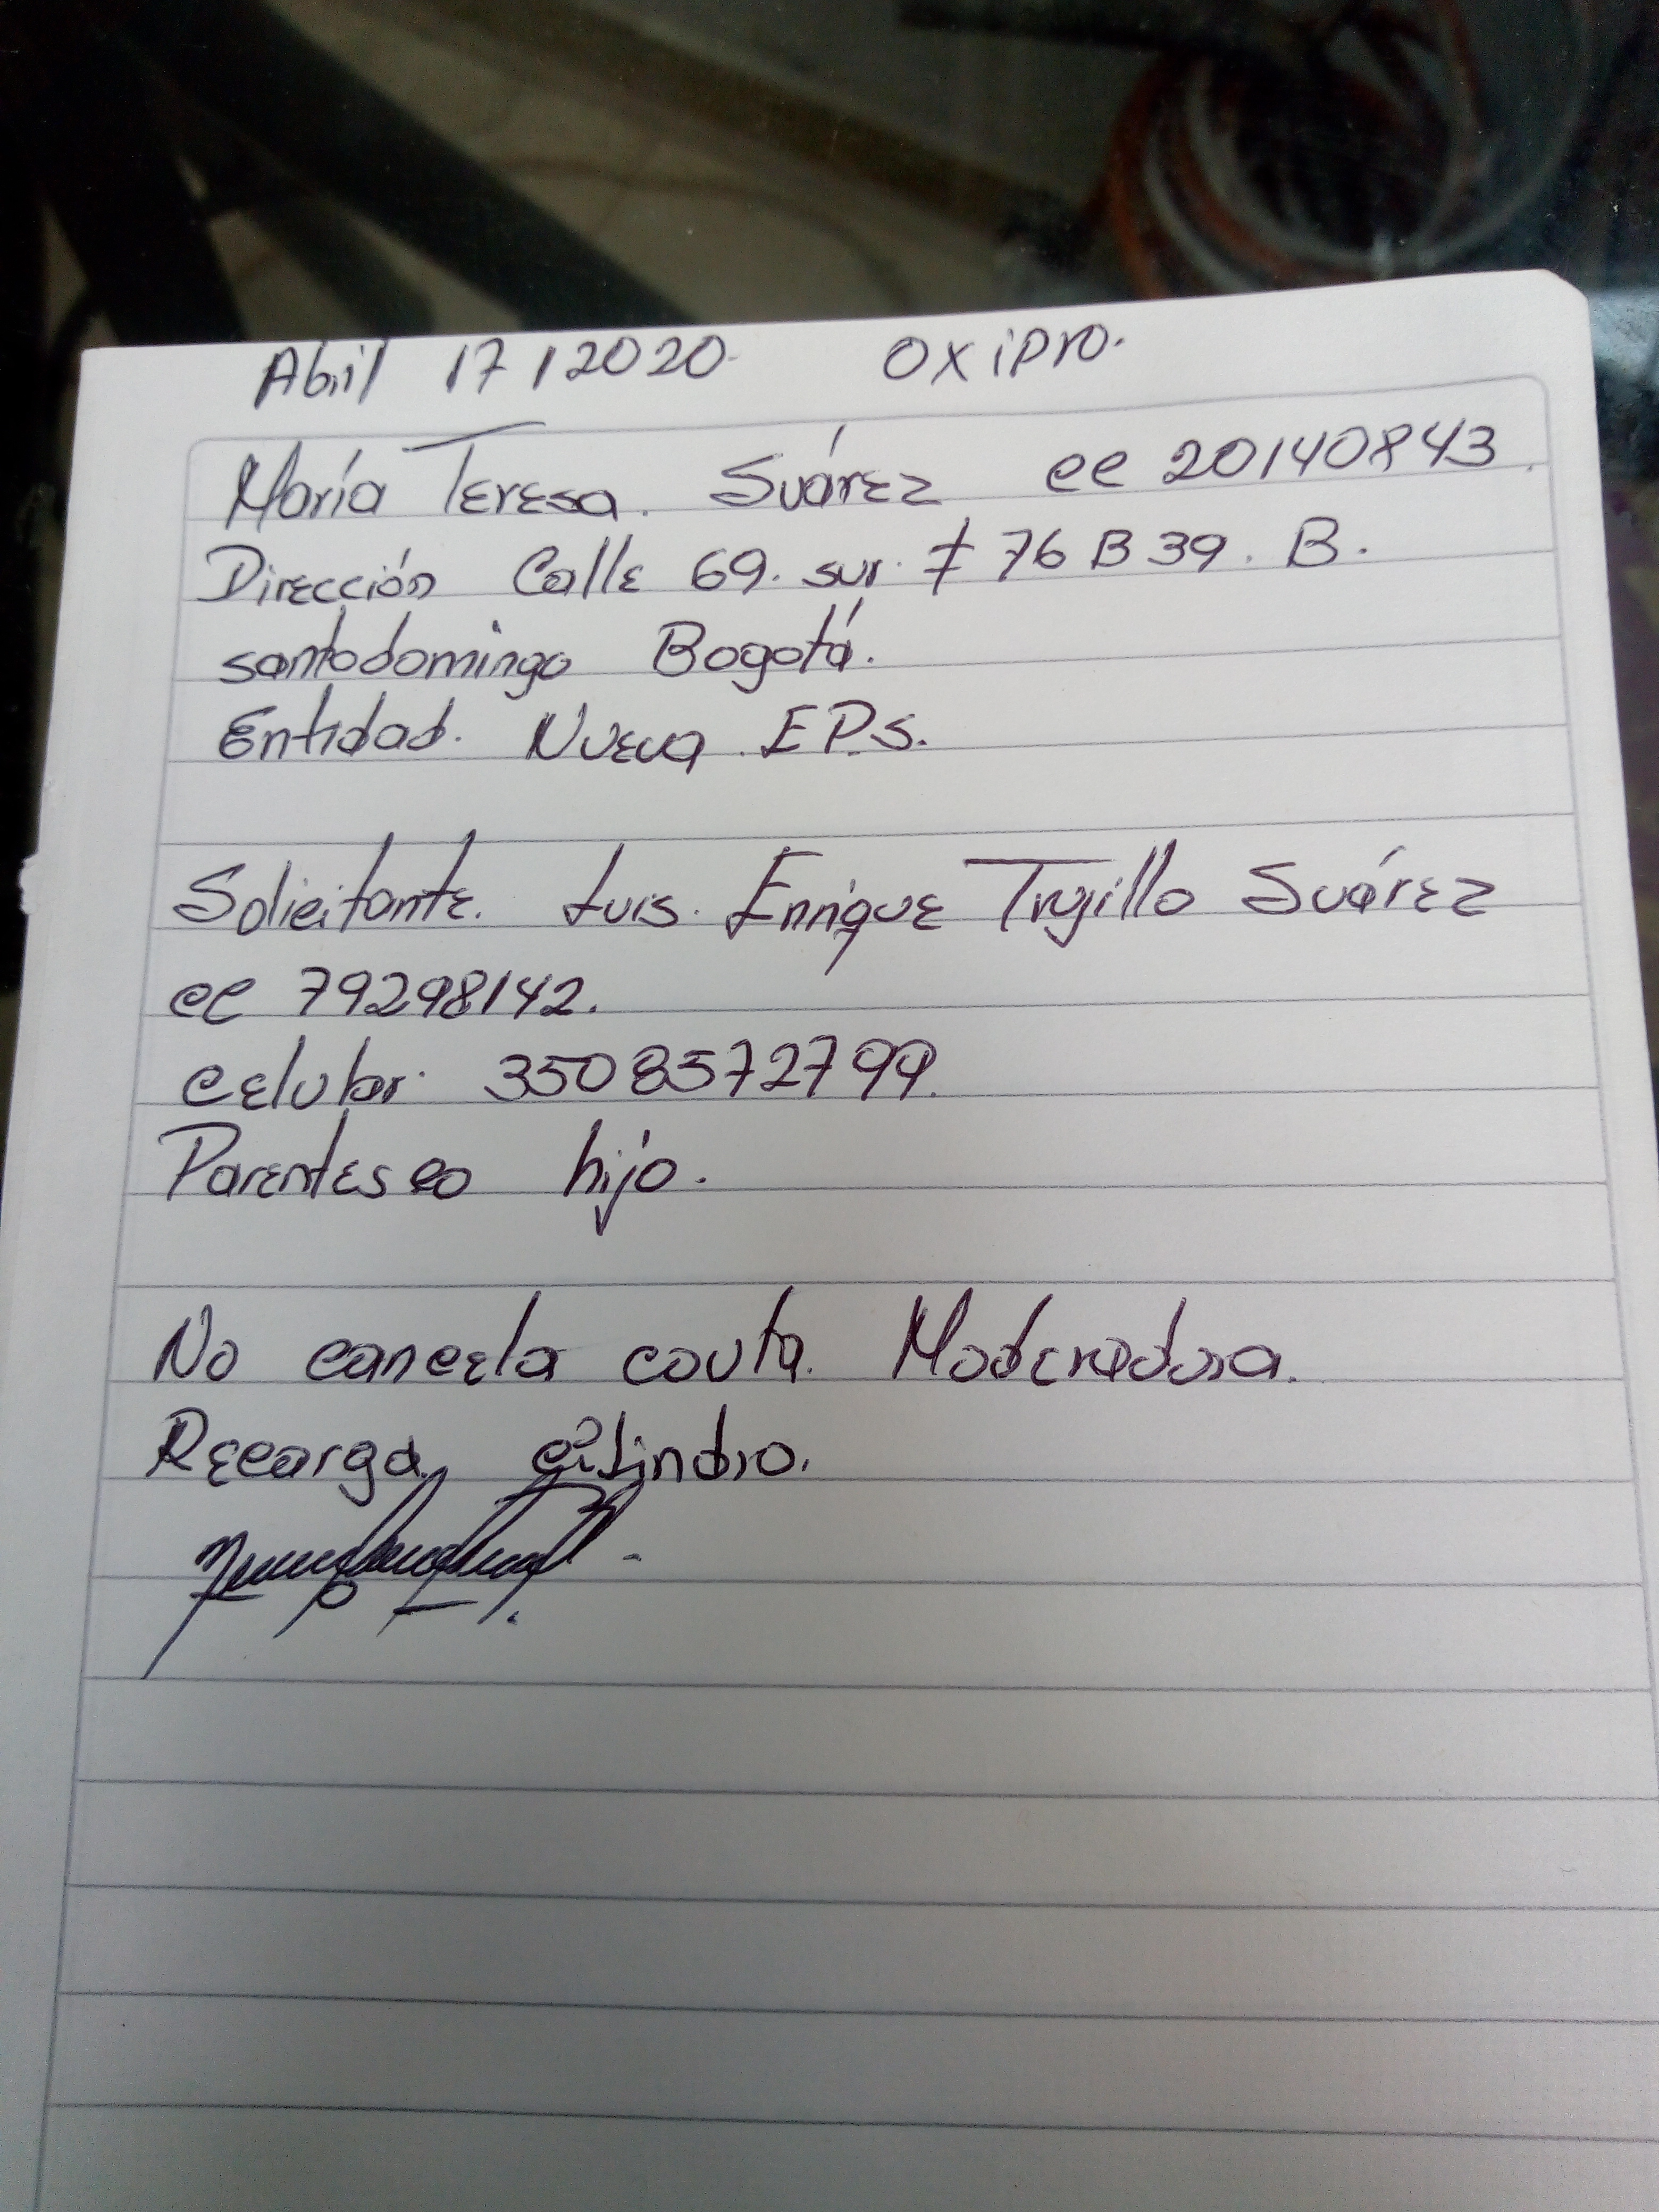 Abril 17/2020 Oxipro.
María Teresa. Suárez cc 20140843.
Dirección Calle 69. sur. # 76 B 39. B.
santodomingo Bogotá.
Entidad. Nueva. EP.S.
Solicitante. Luis. Enrique Trujillo Suárez
cc 79298142.
celular. 3508572799.
Parentesco hijo.
No cancela couta. Moderadora.
Recarga cilindro.